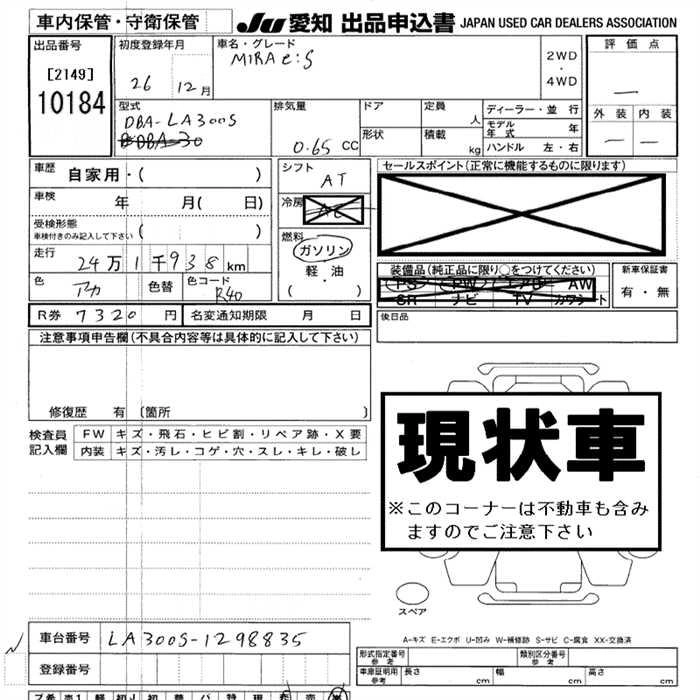 車内保管・守衛保管
JU 愛知 出品申込書 JAPAN USED CAR DEALERS ASSOCIATION
出品番号
[2149]
10184
初度登録年月
26 12月
車名・グレード
MIRA e:S
2WD
・
4WD
評価点
—
外装 内装
— —
型式
DBA-LA300S
排気量
0.65 CC
ドア
形状
定員
人
積載
kg
ディーラー・並行
モデル年式 年
ハンドル 左・右
車歴 自家用・( )
車検 年 月( 日)
受検形態
車検付きのみ記入して下さい ( )
走行 24万1千938km
色 アカ 色替 色コード R40
シフト
AT
冷房
AC
燃料
ガソリン
軽・油
( ・ )
セールスポイント(正常に機能するものに限ります)
装備品(純正品に限り○をつけてください)
PS PW エアB AW
SR ナビ TV カワシート
新車保証書
有・無
R券 7320円 名変通知期限 月 日
後日品
注意事項申告欄(不具合内容等は具体的に記入して下さい)
修復歴 有 [箇所 ]
検査員
記入欄
FW キズ・飛石・ヒビ割・リペア跡・X要
内装 キズ・汚レ・コゲ・穴・スレ・キレ・破レ
現状車
※このコーナーは不動車も含み
ますのでご注意下さい
スペア
A-キズ E-エクボ U-凹み W-補修跡 S-サビ C-腐食 XX-交換済
車台番号 LA300S-1298835
登録番号
形式指定番号
参考
類別区分番号
参考
車庫証明用
参考
長さ cm 幅 cm 高さ cm